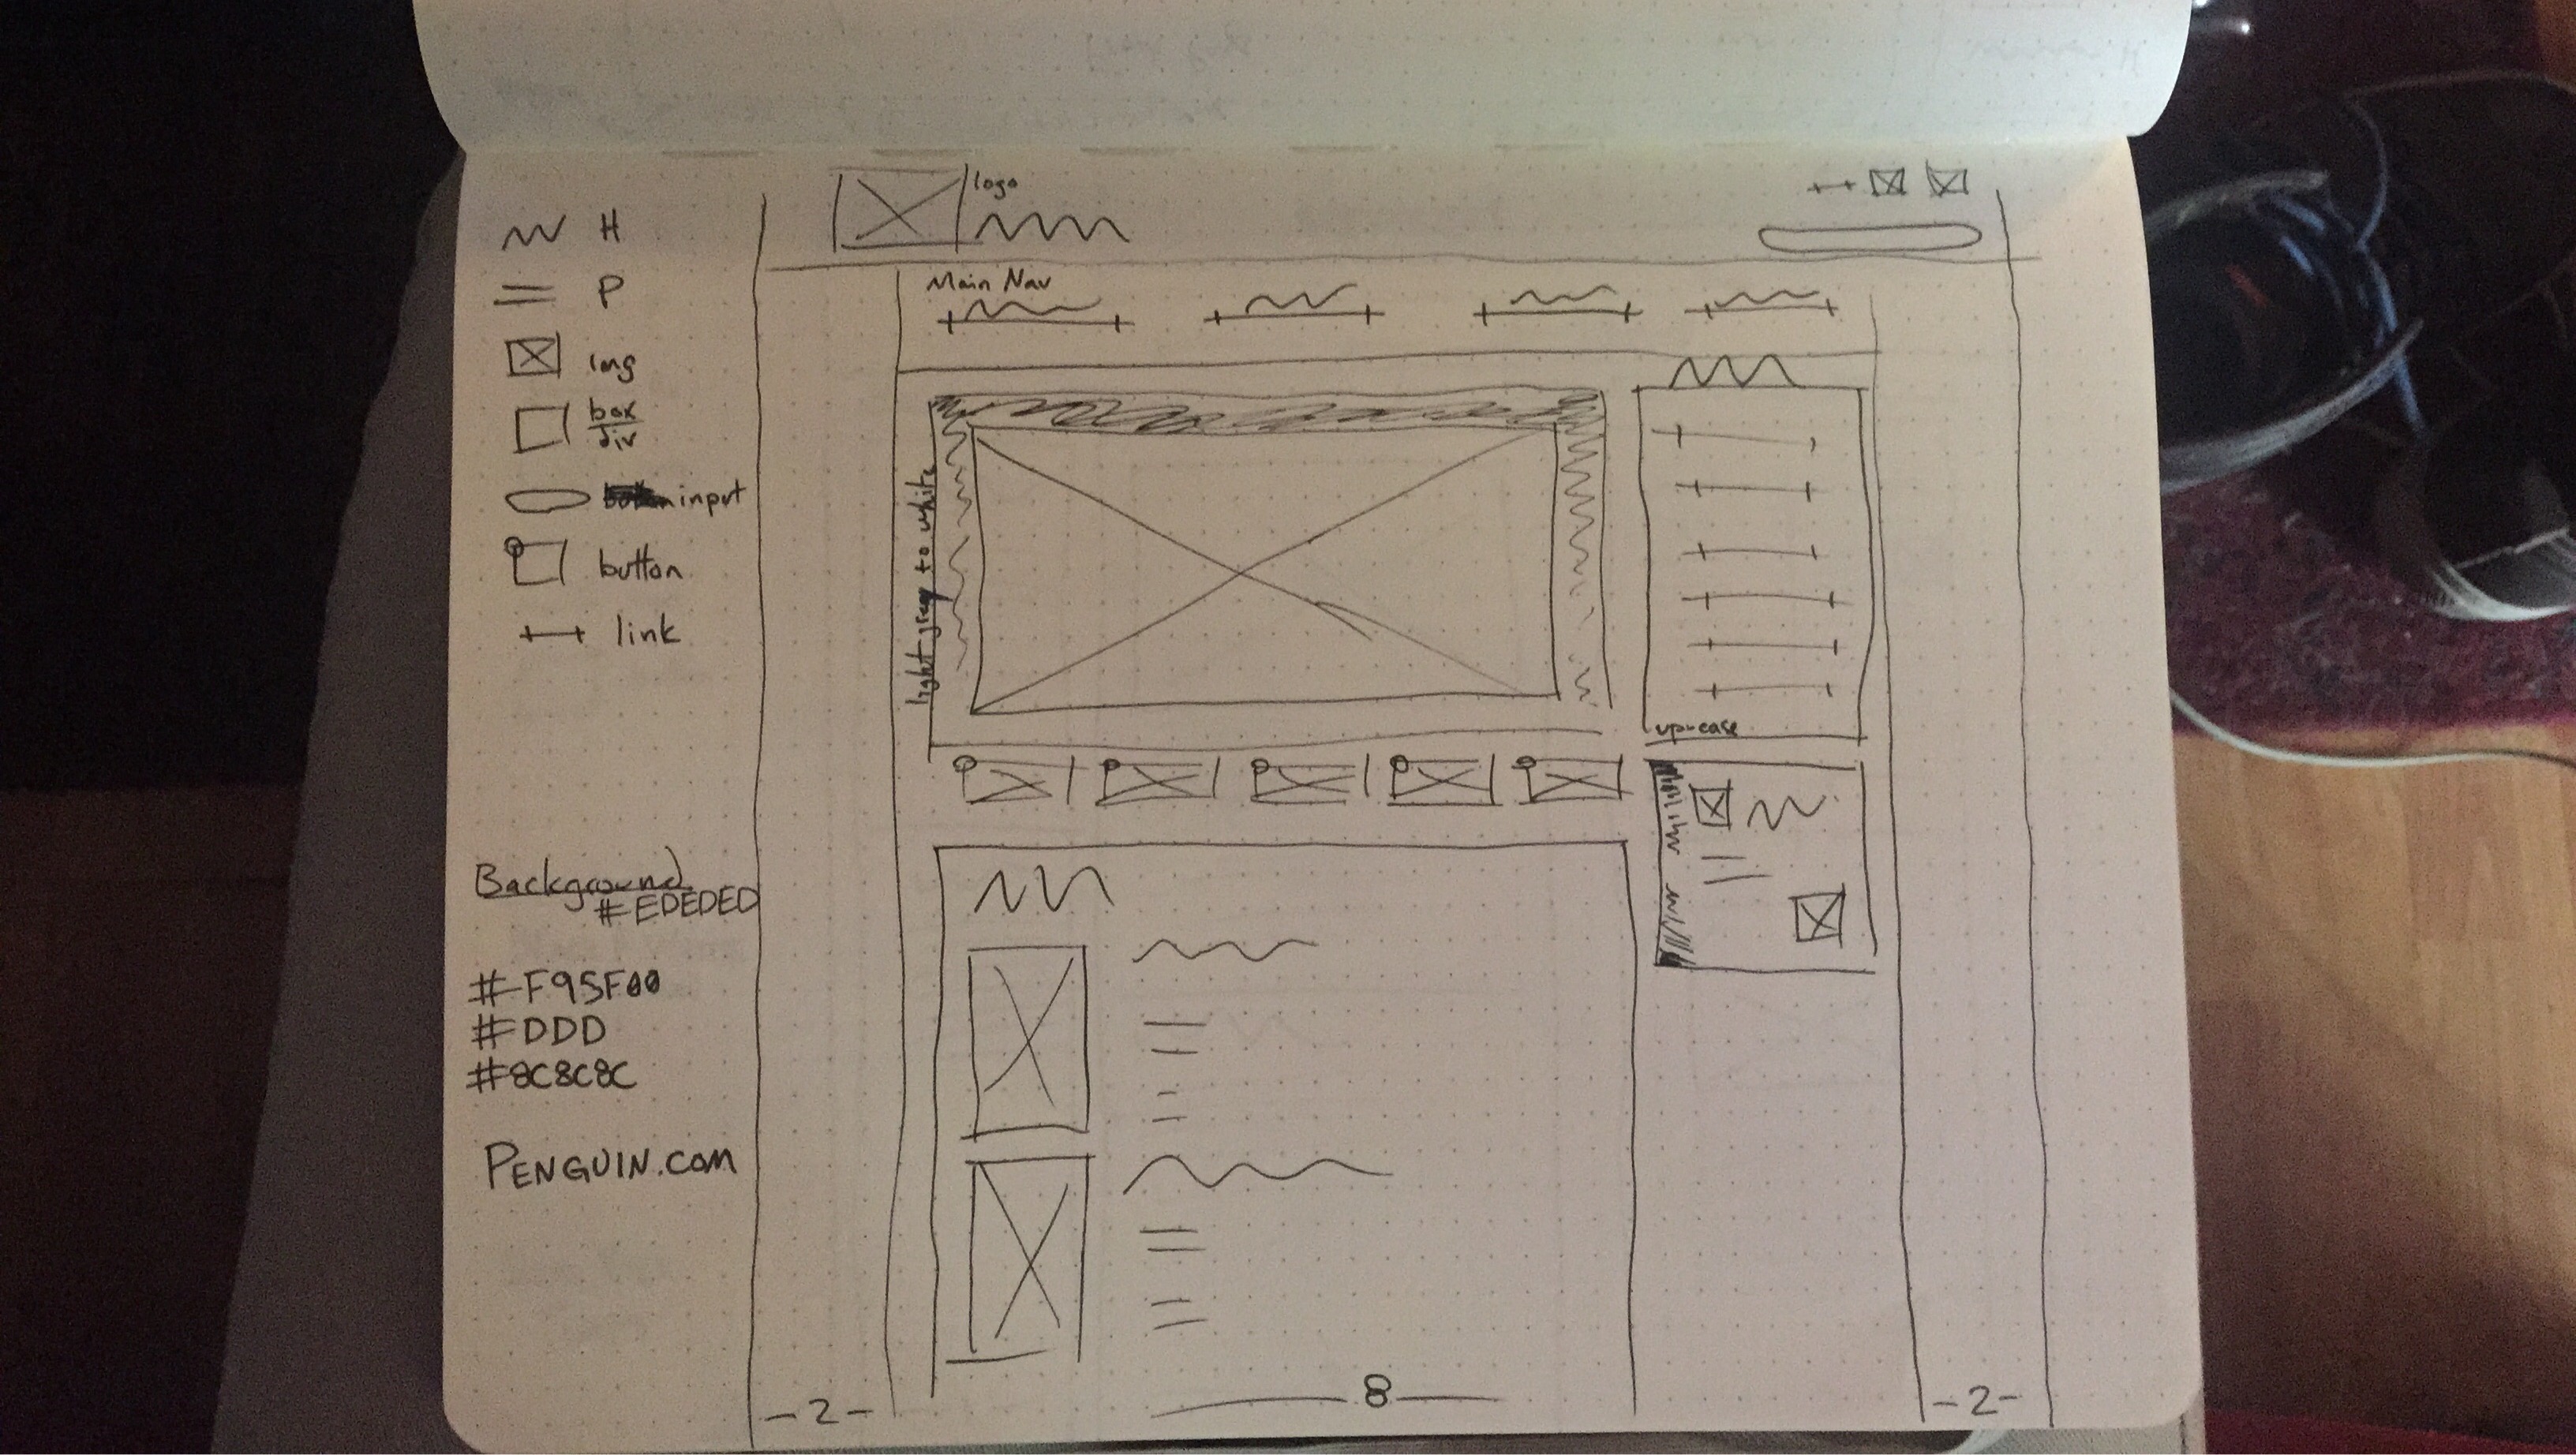 H
P
img
box
div
input
button
link
Background
#EDEDED
#F95F00
#DDD
#8C8C8C
PENGUIN.com
logo
Main Nav
light gray to white
up-case
-2-
8
-2-